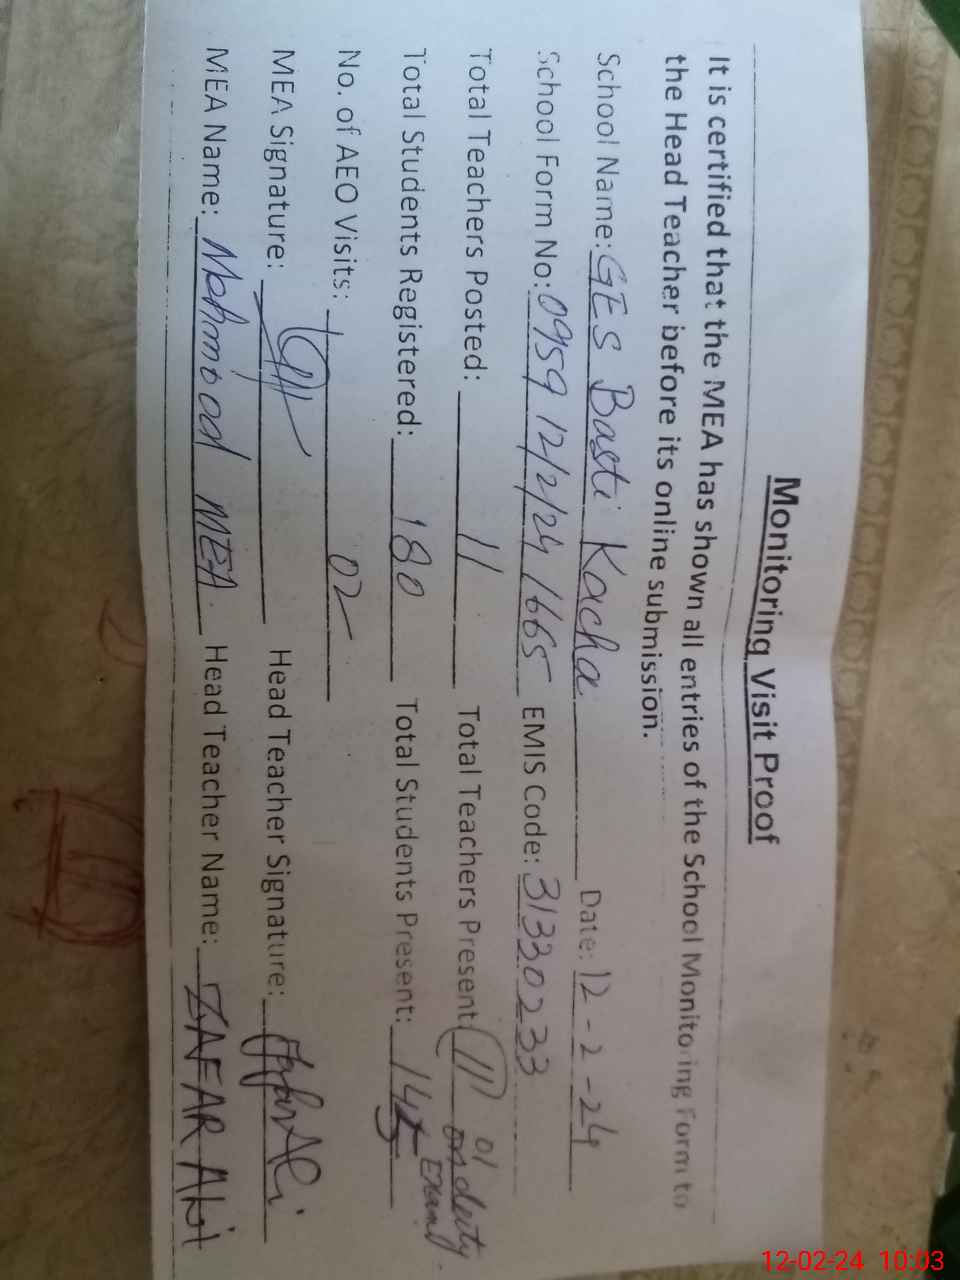 Monitoring Visit Proof
It is certified that the MEA has shown all entries of the School Monitoring Form to
the Head Teacher before its online submission.
School Name: GES Basti Kacha Date: 12-2-24
School Form No: 0959 12/2/24 1665 EMIS Code: 31330233
Total Teachers Posted: 11 Total Teachers Present 11 01 on deuty
Total Students Registered: 180 Total Students Present: 145
No. of AEO Visits: 02
MEA Signature: Head Teacher Signature:
MEA Name: Mahmood MEA. Head Teacher Name: ZAFAR ALi
12-02-24 10:03